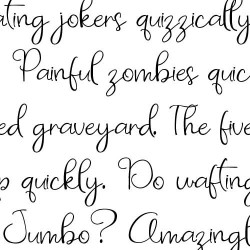 ating jokers quizzically
Painful zombies quic
ed graveyard. The five
p quickly. Do wafting
Jumbo? Amazingl